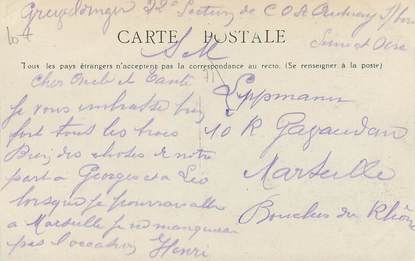 22e Section de C O A
Seine et Oise
CARTE POSTALE
Tous les pays étrangers n'acceptent pas la correspondance au recto. (Se renseigner à la poste)
S M
Cher Oncle et Tante
Je vous embrasse bien
fort tous les trois
Bien des choses de notre
part a Georges et a Léo
lorsque je pourrai aller
a Marseille je ne manquerai
pas l'occasion Henri
Lippmann
10 R.
Marseille
Bouches du Rhône